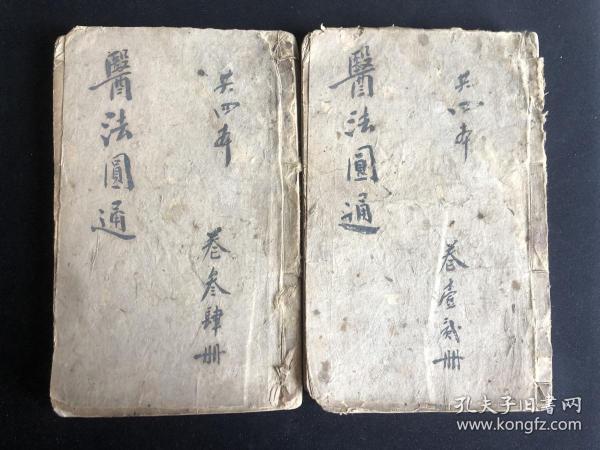 醫法圓通
共四本
卷壹貳冊
醫法圓通
共四本
卷叁肆冊
孔夫子旧书网
www.kongfz.com